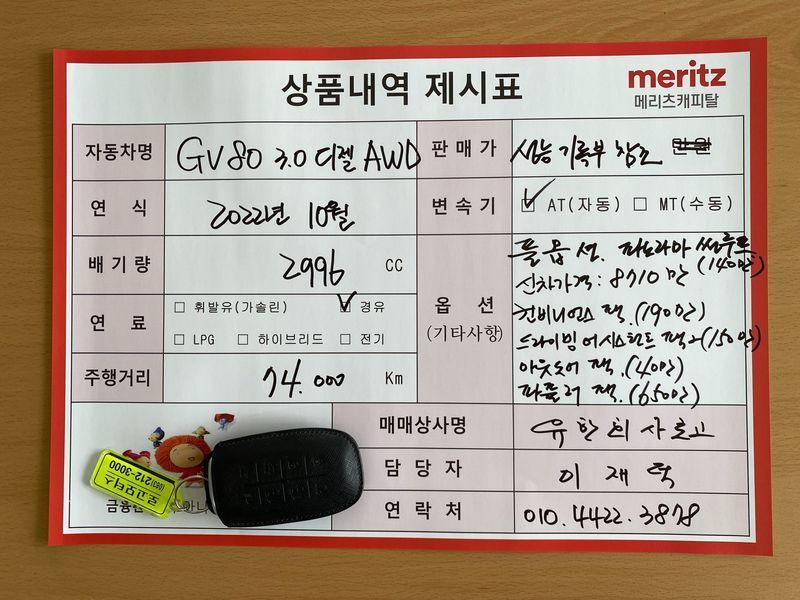 상품내역 제시표
meritz
메리츠캐피탈
자동차명 GV80 3.0 디젤 AWD
판매가 성능기록부 참조 만원
연 식 2022년 10월
변속기 ☑ AT(자동) □ MT(수동)
배기량 2996 CC
연 료 □ 휘발유(가솔린) ☑ 경유
□ LPG □ 하이브리드 □ 전기
주행거리 74.000 Km
옵 션
(기타사항)
풀옵션. 파노라마 썬루프
(140만)
신차가격: 8710만
컨비니언스 팩.(190만)
드라이빙 어시스턴트 팩2(150만)
아웃도어 팩.(40만)
파퓰러 팩.(650만)
매매상사명 유한회사로고
담당자 이재혁
연락처 010.4422.3878
로고모터스
(063)212-3000
금융